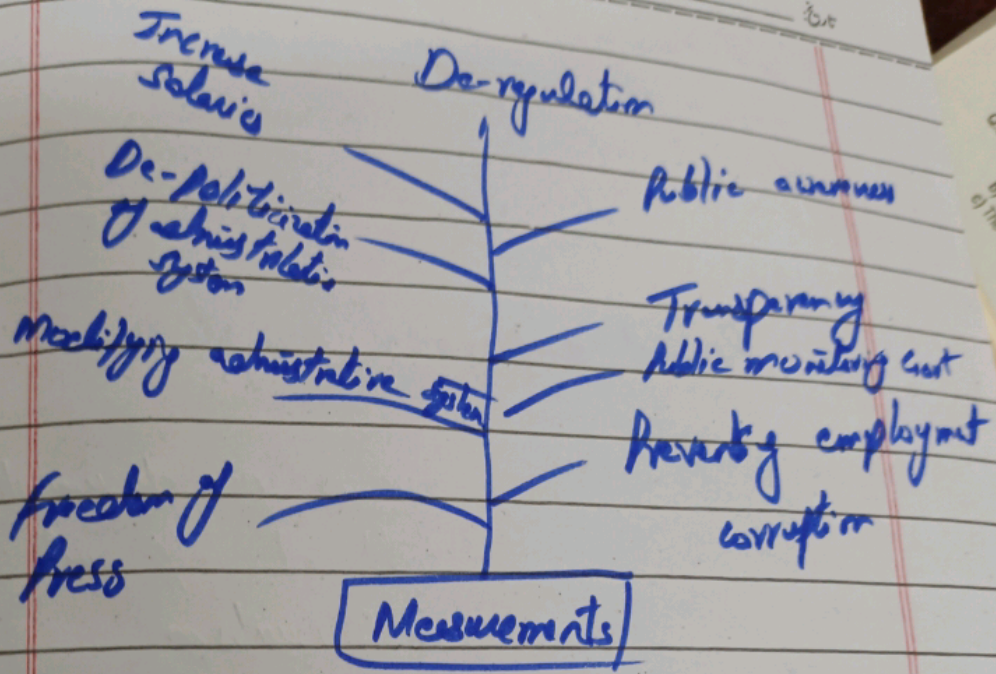 Increase
Salaries
De-regulation
De-Politicization
of administrative
system
Public awareness
Transparency
Modifying administrative system
Public monitoring
Preventing employment
corruption
Freedom of
Press
Measurements